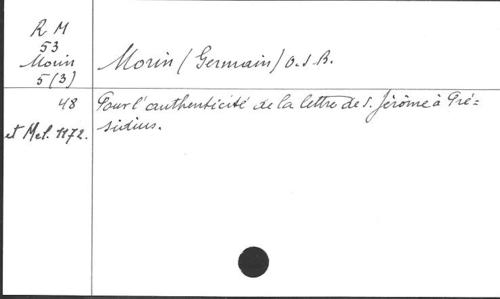 R M
53
Morin
5(3)
Morin (Germain) O.S.B.
48
Pour l'authenticité de la lettre de S. Jérôme à Pré=
sidius.
et Mel. 1172.